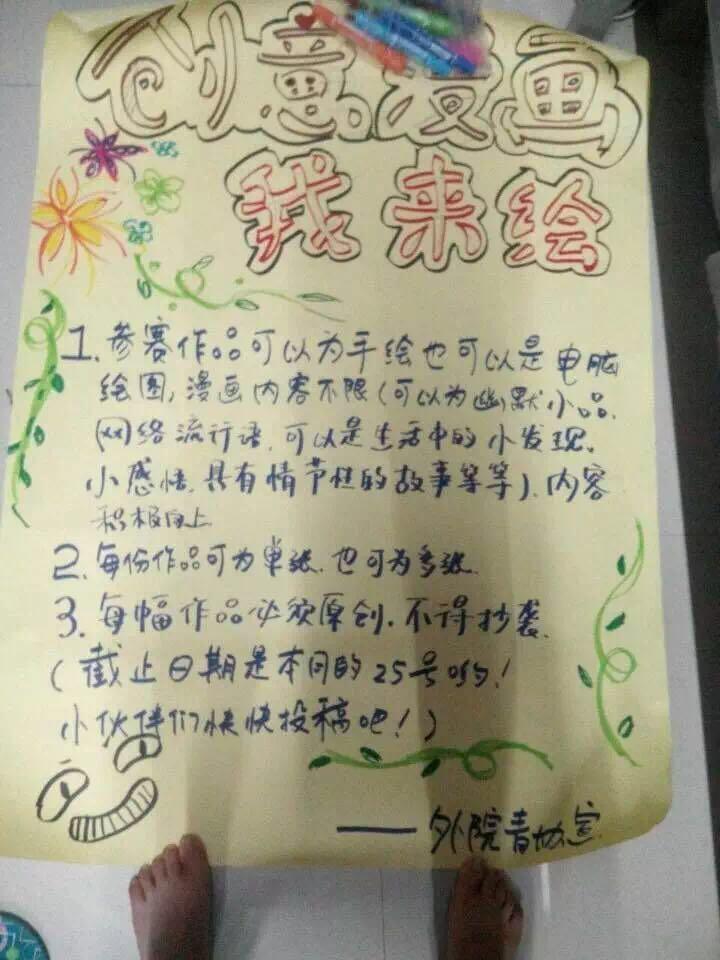 创意漫画
我来绘
1、参赛作品可以为手绘也可以是电脑
绘图,漫画内容不限(可以为幽默小品、
网络流行语,可以是生活中的小发现、
小感悟、具有情节性的故事等等)、内容
积极向上
2、每份作品可为单张、也可为多张
3、每幅作品必须原创、不得抄袭、
(截止日期是本月的25号哟!
小伙伴们快快投稿吧!)
——外院青协宣